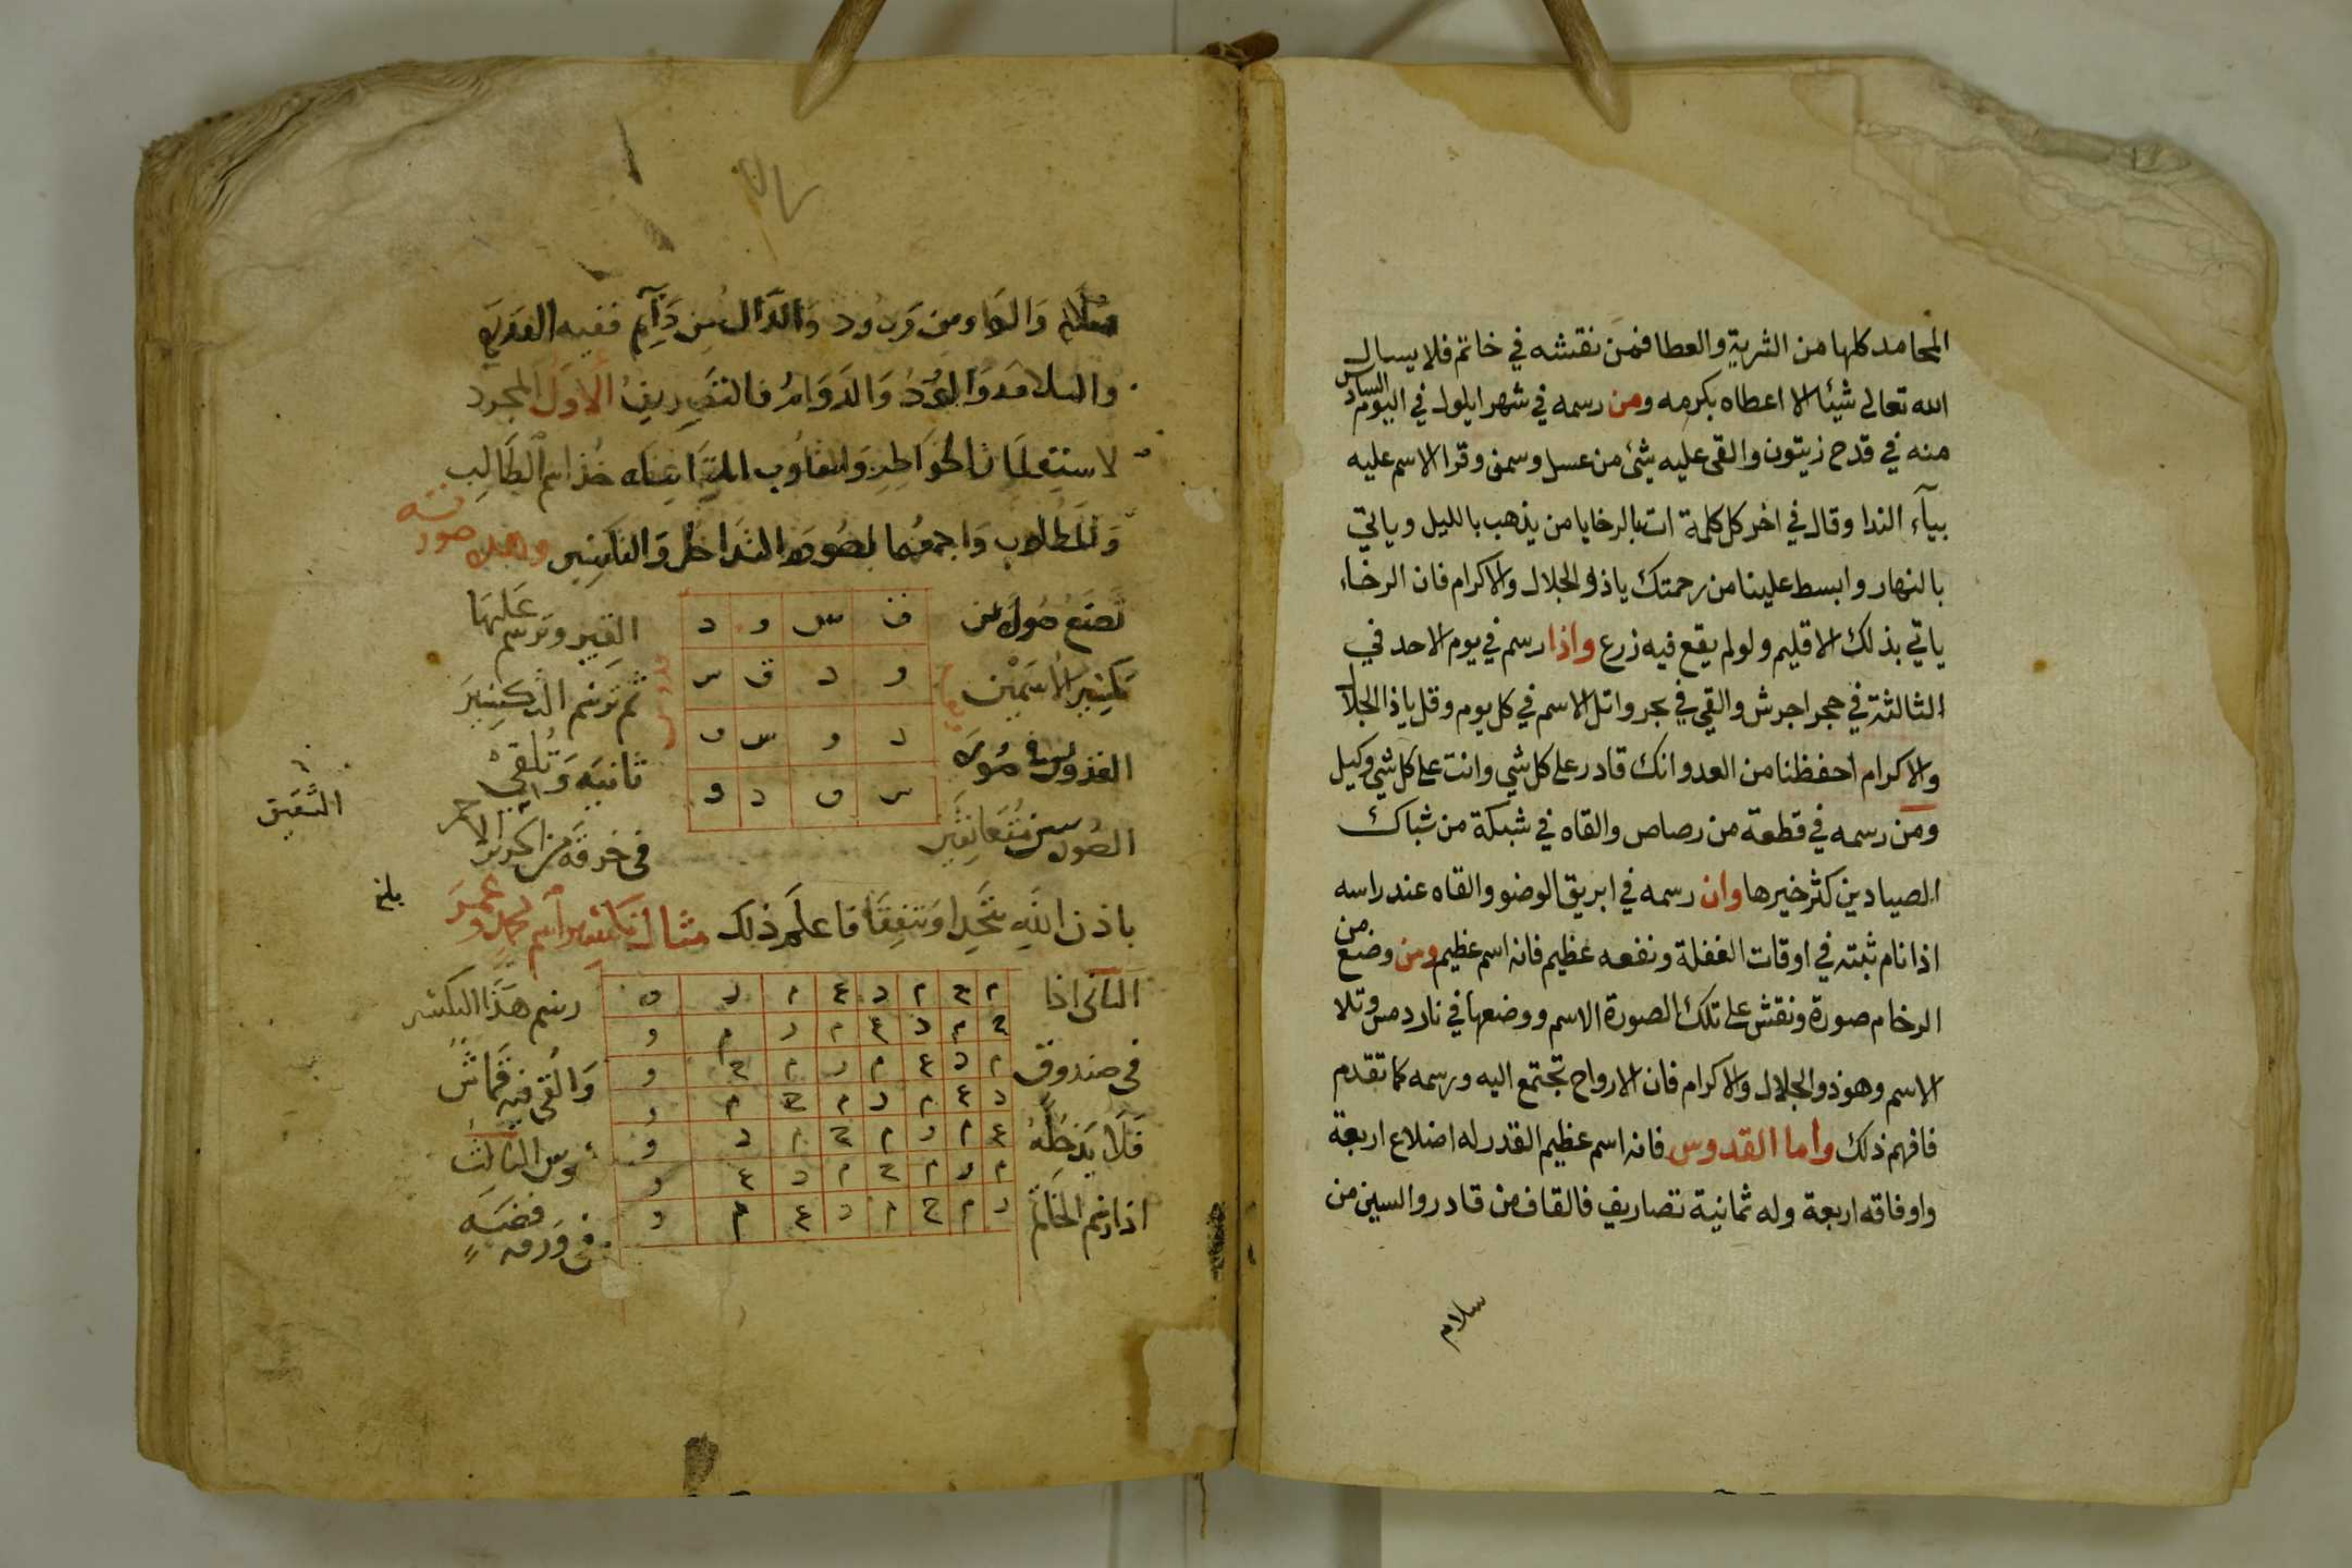 المحامد كلها من الثرية والعطا فمن نقشه في خاتم فلا يسال
الله تعالى شيئا الا اعطاه بكرمه ومن رسمه في شهر ايلول في اليوم السادس
منه في قدح زيتون والقى عليه شئ من عسل وسمن وقرا الاسم عليه
بيآء الندا وقال في اخر كل كلمة ات بالرخا يا من يذهب بالليل وياتي
بالنهار وابسط علينا من رحمتك ياذا الجلال والاكرام فان الرخاء
ياتي بذلك الاقليم ولو لم يقع فيه زرع واذا رسم في يوم الاحد في
الثالثة في حجر اجرش والقي في بحر واتل الاسم في كل يوم وقل ياذا الجلال
والاكرام احفظنا من العدو انك قادر على كل شي وانت على كل شي وكيل
ومن رسمه في قطعة من رصاص والقاه في شبكة من شباك
الصيادين كثر خيرها وان رسمه في ابريق الوضو والقاه عند راسه
اذا نام ثبته في اوقات الغفلة ونفعه عظيم فانه اسم عظيم ومن وضع من
الرخام صورة ونقش على تلك الصورة الاسم ووضعها في نار دمس وتلا
الاسم وهو ذو الجلال والاكرام فان الارواح تجتمع اليه ورسمه كما تقدم
فافهم ذلك واما القدوس فانه اسم عظيم القدر له اضلاع اربعة
واوفاقه اربعة وله ثمانية تصاريف فالقاف من قادر والسين من
سلام
سلام والواو من ودود والدال من دآيم ففيه القدرة
والسلامة والود والدوام فالتصريف الاول المجرد
خذ اسم الطالب
والمطلوب واجمعهما بصورة التداخل والتكسير وهذه صورته
تصنع صورة من
تكسير الاسمين
القدوس في صورة
الصورتين متعانقين
ق س و د
و د ق س
د و س ق
س ق د و
القير وترسم عليها
ثم ترسم التكسير
ثانية وتلقي
في خرقة من الحرير الاحمر
التفيق
بلغ
باذن الله يتحدا ويتفقا فاعلم ذلك مثال تكسير اسم محمد وعمر
الثاني اذا
في صندوق
فلا يدخله
اذا رسم الخاتم
م ح م د ع م ر و
ح م د ع م ر م و
م د ع م ر م ح و
د ع م ر م ح م و
ع م ر م ح م د و
م ر م ح م د ع و
ر م ح م د ع م و
رسم هذا التكسير
والقي فيه قماش
سوس الثالث
في ورقة فضة